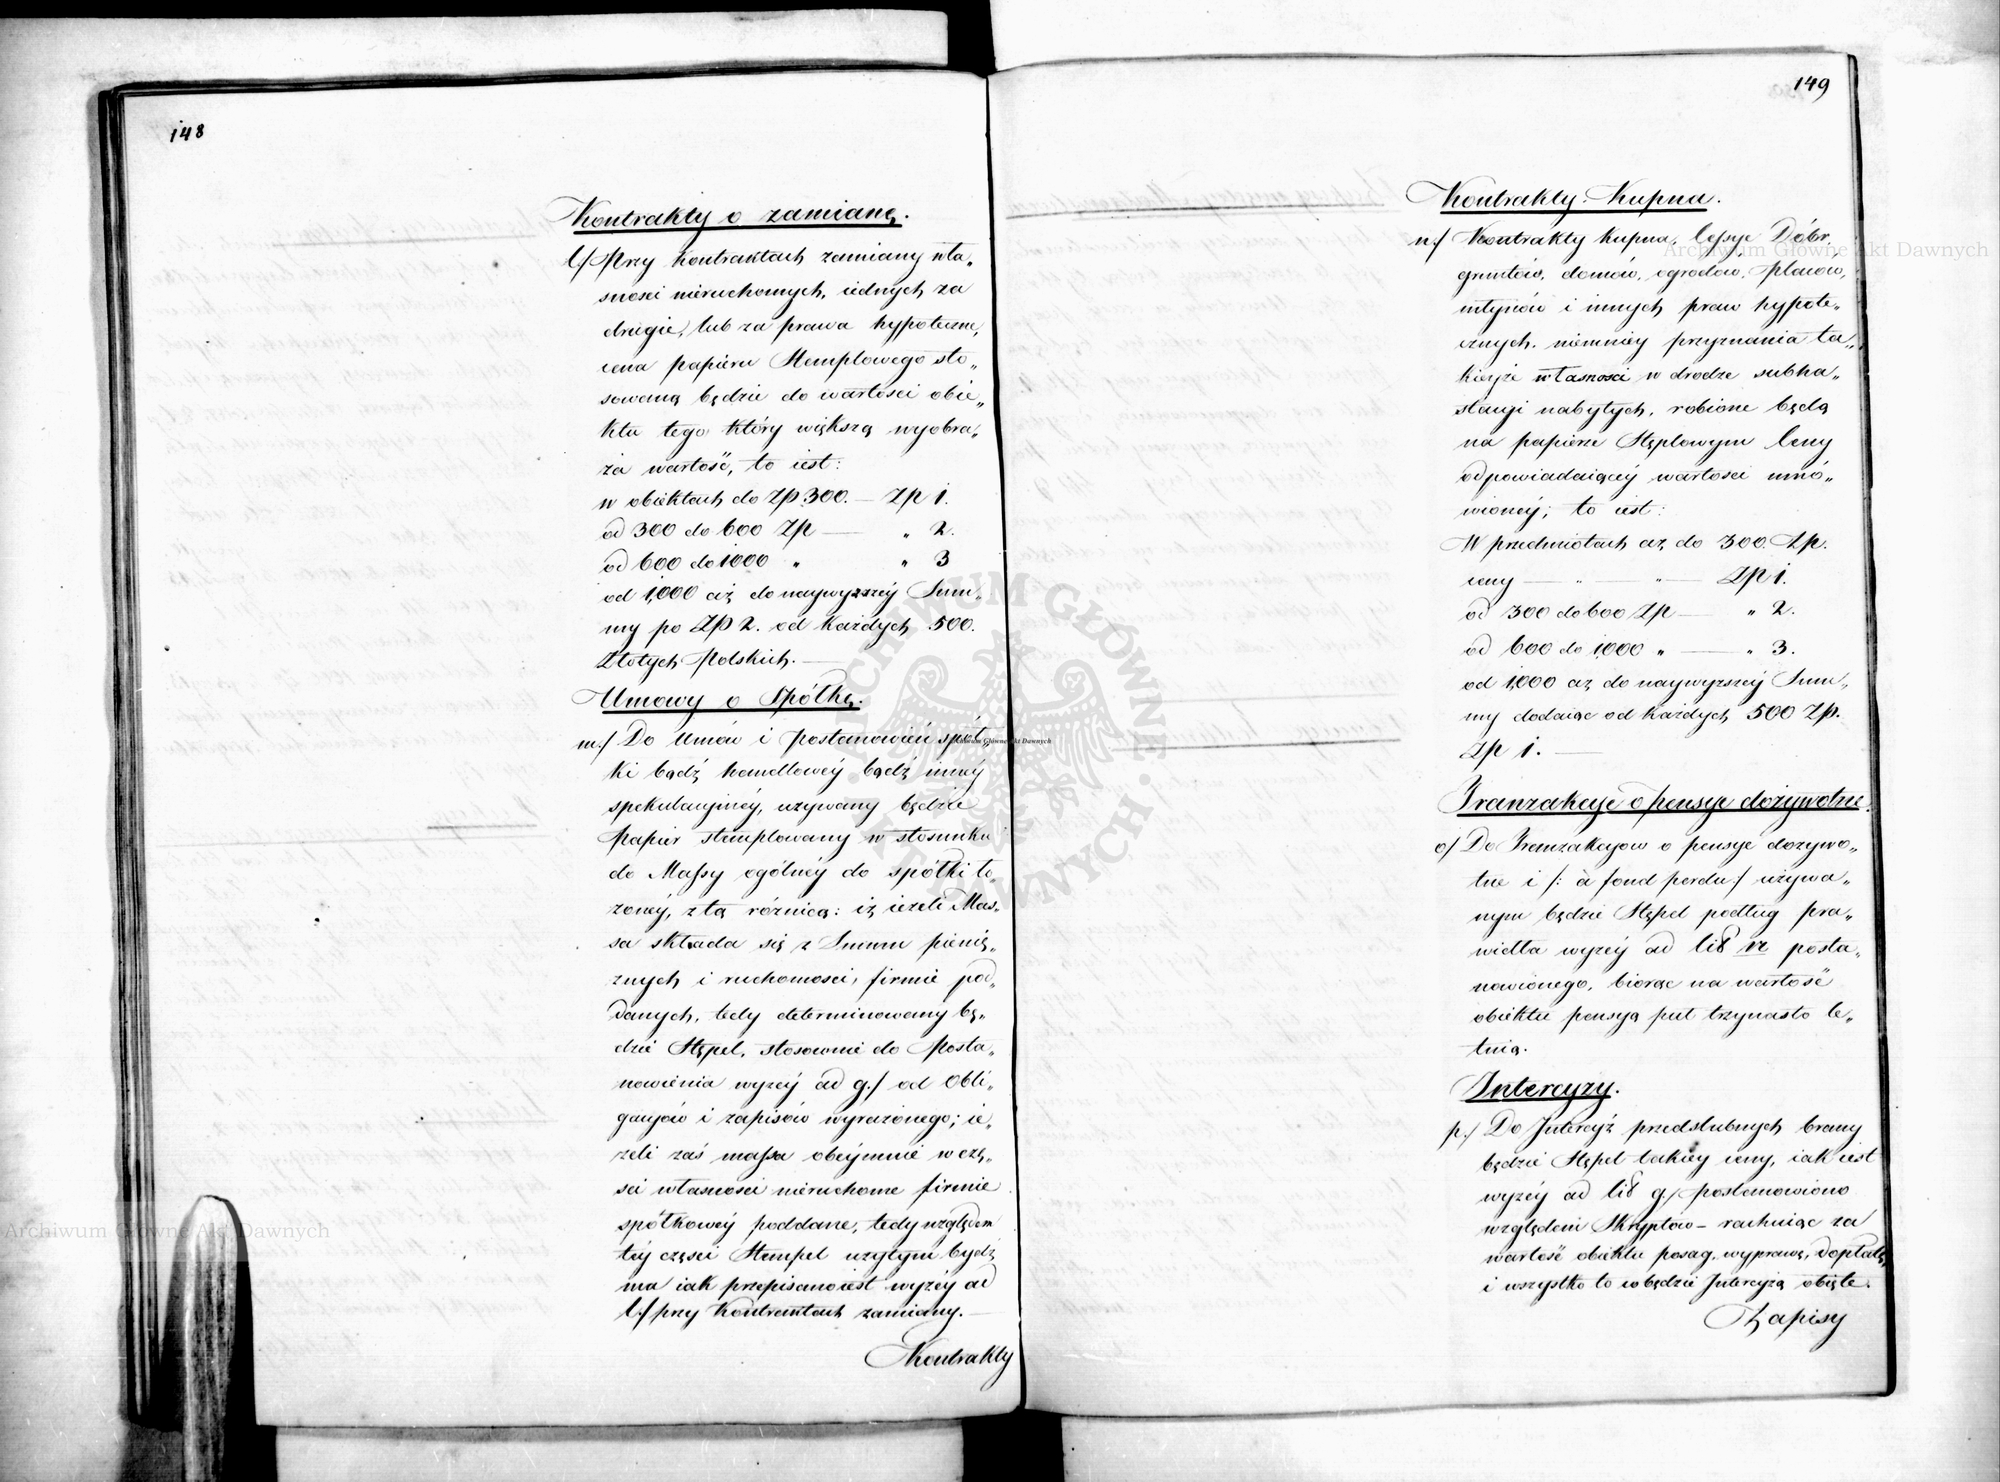 148
Kontrakty o zamianę.
l./ Przy kontraktach zamiany wła„
sności nieruchomych, iednych za
drugie, lub za prawa hypoteczne,
cena papieru Stemplowego sto„
sowaną będzie do wartości obie„
ktu tego który większą wyobra„
ża wartość, to iest:
w obiektach do Zp 300. — Zp 1.
od 300 do 600 Zp — „ 2.
od 600 do 1000 „ „ 3
od 1,000 aż do naywyższéy Sum„
my po Zp 2. od każdych 500.
Złotych Polskich. —
Umowy o Spółkę.
m./ Do Umów i postanowień spół„
ki bądź handlowéy bądź innéy
spekulacyinéy, używany będzie
Papier stemplowany w stosunku
do Massy ogólnéy do spółki ło„
żonéy, z tą różnicą: iż ieżeli Mas„
sa składa się z Summ pienię„
żnych i ruchomości, firmie pod„
danych, tedy determinowany bę„
dzie Stępel, stosownie do Posta„
nowienia wyżéy ad g./ od Obli„
gacyów i zapisów wyrażonego; ie„
żeli zaś massa obeymnie w czę„
ści własności nieruchome firmie
spółkowéy poddane, tedy względem
téy części Stempel użytym bydź
ma iak przepisano iest wyżéy ad
l./ przy Kontraktach zamiany. —
Kontrakty
149
Kontrakty Kupna.
n./ Kontrakty kupna, Cessye Dóbr,
gruntów, domów, ogrodów, placów,
młynów i innych praw hypote„
cznych, niemniéy przyznania ta„
kieyże własności w drodze subha„
stacyi nabytych, robione będą
na papierze Stęplowym Ceny
odpowiadaiącéy wartości umó„
wionéy; to iest:
W przedmiotach aż do 300. Zp.
ceny — „ — „ — Zp 1.
od 300 do 600 Zp — „ 2.
od 600 do 1000 „ — „ 3.
od 1,000 aż do naywyższéy Sum„
my dodaiąc od każdych 500 Zp.
Zp 1. —
Tranzakcye o pensye dożywotne.
o/ Do Tranzakcyow o pensye dożywo„
tne i /: à fond perdu :/ używa„
nym będzie Stępel podług pra„
widła wyżéy ad litt n posta„
nowionego, biorąc na wartość
obiektu pensyą pul trzynasto le„
tnią.
Intercyzy.
p./ Do Intercyz przedślubnych brany
będzie Stępel takiéy ceny, iak iest
wyżéy ad litt g./ postanowiono
względem Skryptów – rachuiąc za
wartość obiektu posag, wyprawę, dopłatę,
i wszystko to co będzie Intercyzą obięte.
Zapisy
Archiwum Główne Akt Dawnych
Archiwum Główne Akt Dawnych
Archiwum Główne Akt Dawnych
ARCHIWUM GŁÓWNE AKT DAWNYCH